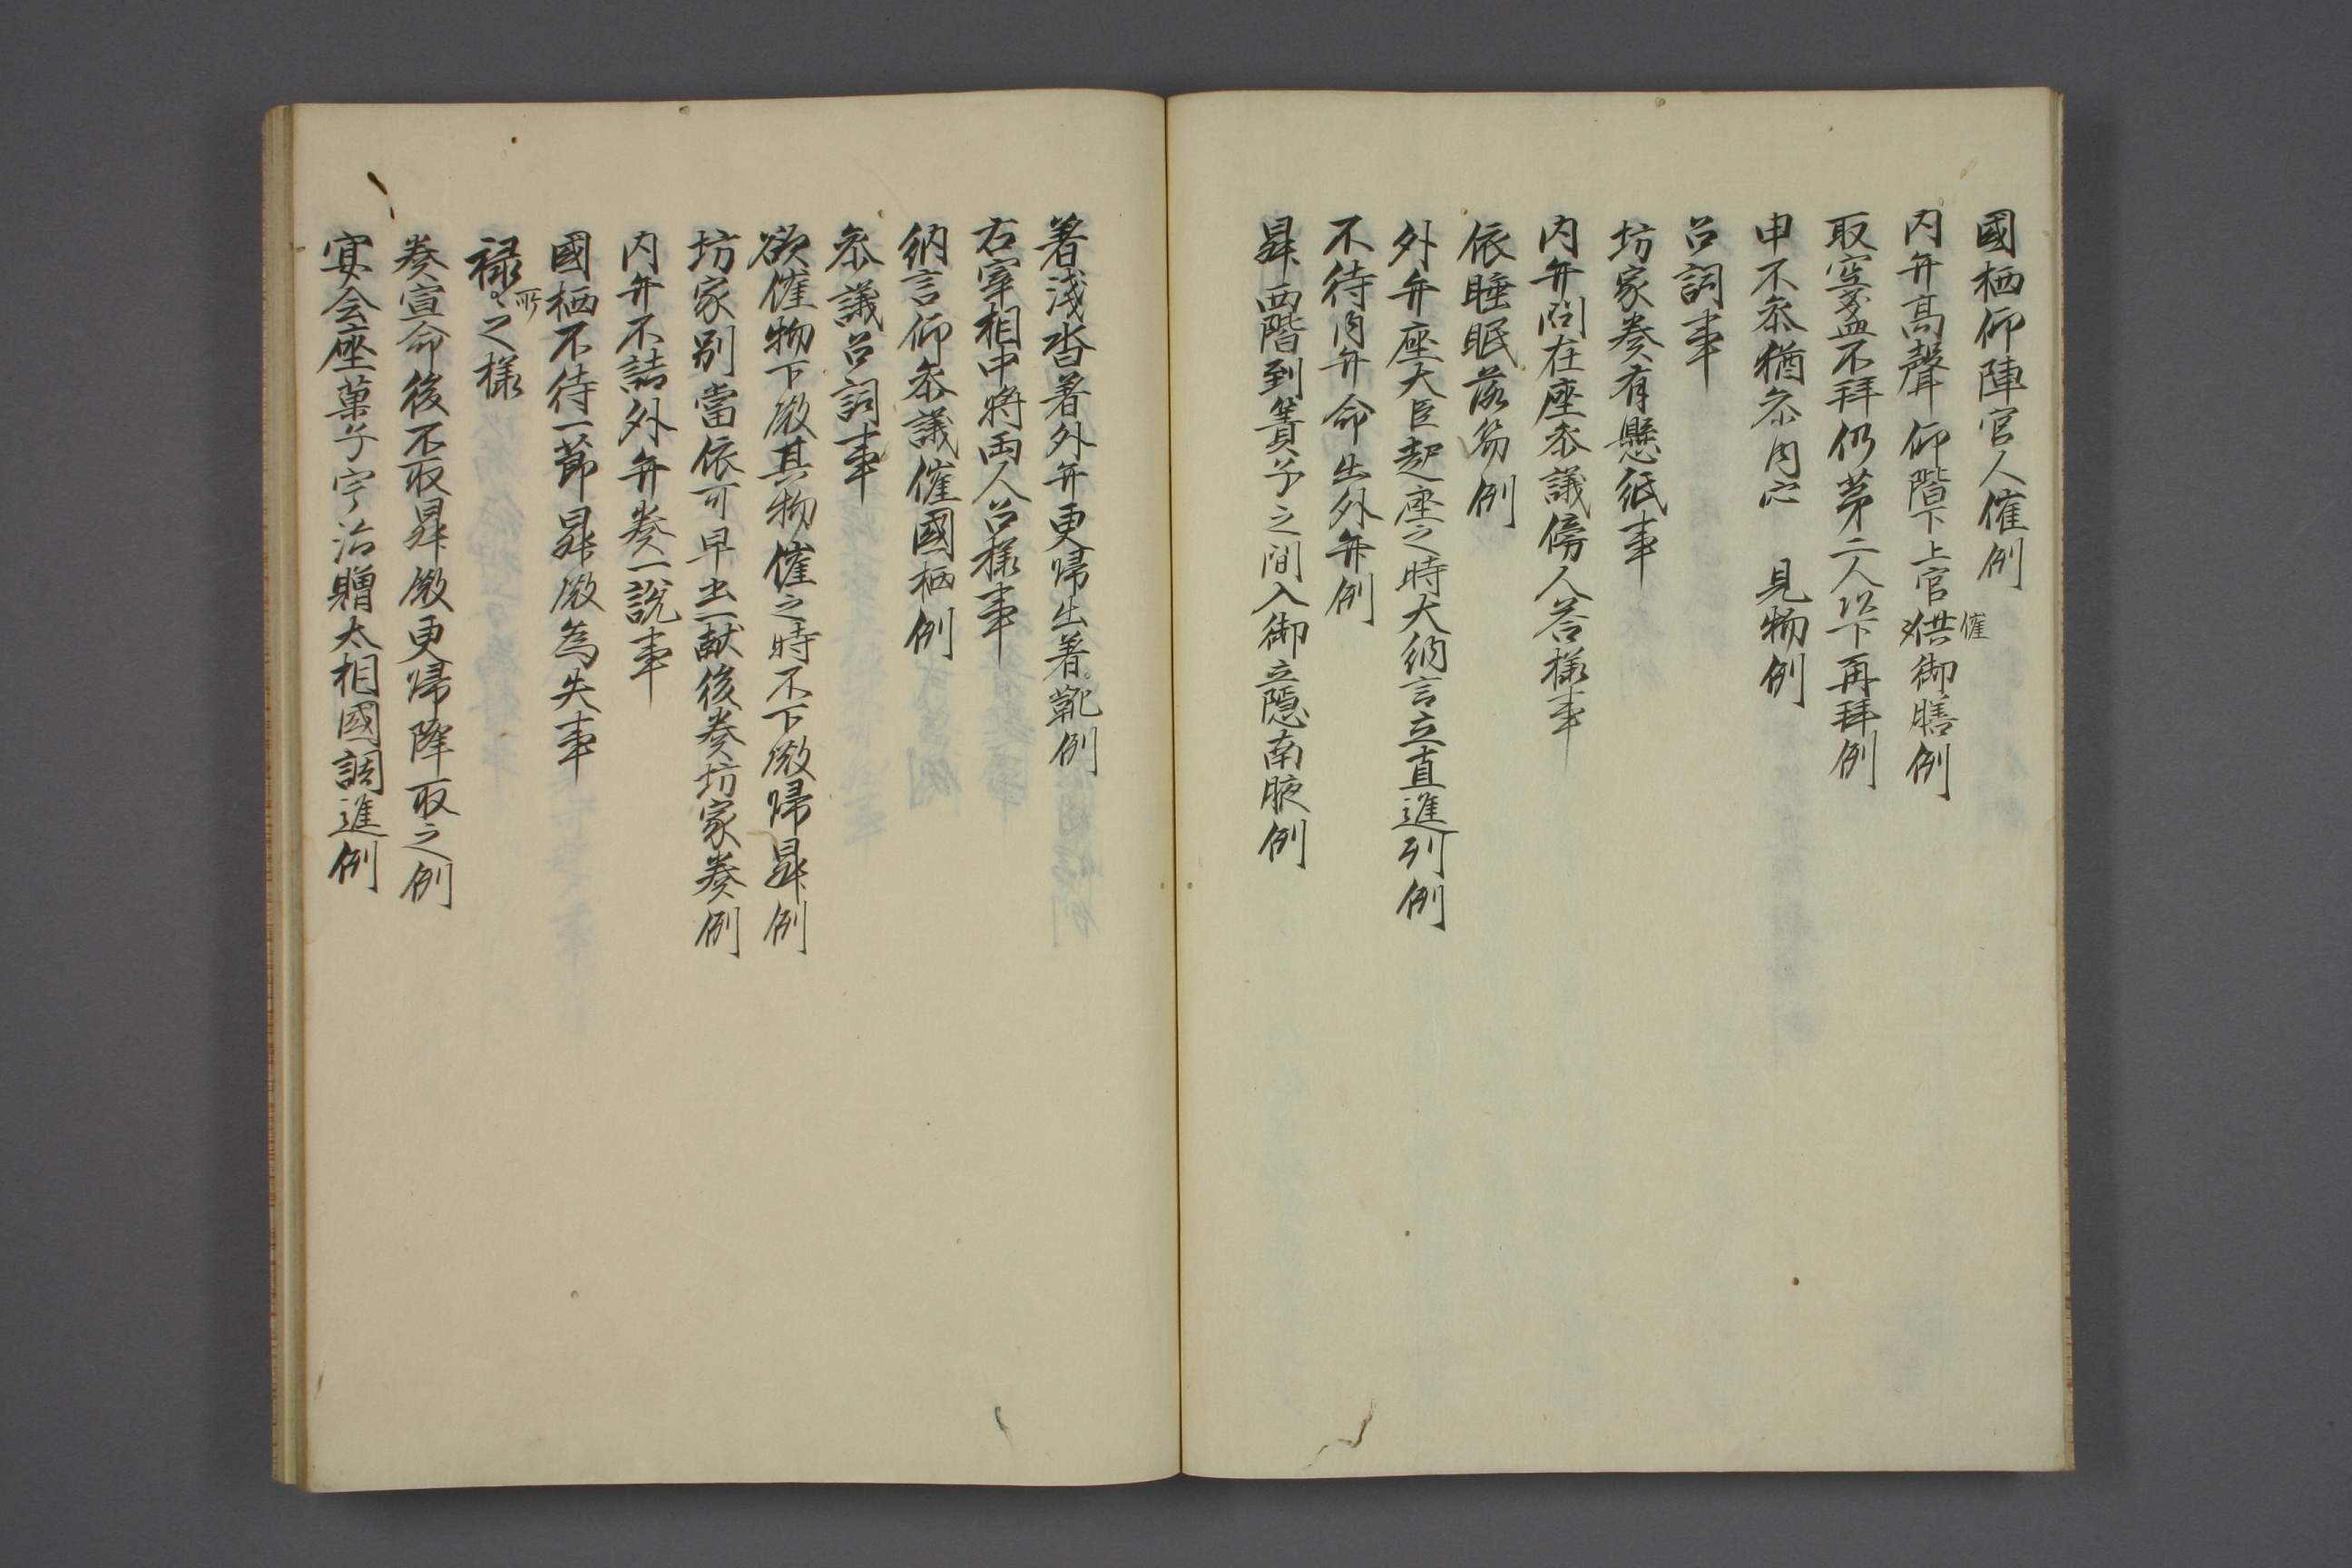 國栖仰陣官人催例
内弁髙聲仰階下上官催供御膳例
取空盞不拜仍苐二人以下再拜例
申不参猶参内 見物例
召詞事
坊家奏有懸紙事
内弁問在座参議傍人荅様事
依睡眠落笏例
外弁座大臣起座之時大納言立直進列例
不待内弁命出外弁例
昇西階到簀子之間入御立隠南腋例
著淺沓著外弁更帰出著靴例
右宰相中将両人召様事
納言仰参議催國栖例
参議召詞事
欲催物下殿其物催之時不下殿帰昇例
坊家別當依可早出一献後奏坊家奏例
内弁不請外弁奏一説事
國栖不待一節昇殿為失事
禄所之様
奏宣命後不取昇殿更帰降取之例
宴会座菓子宇治贈太相國調進例